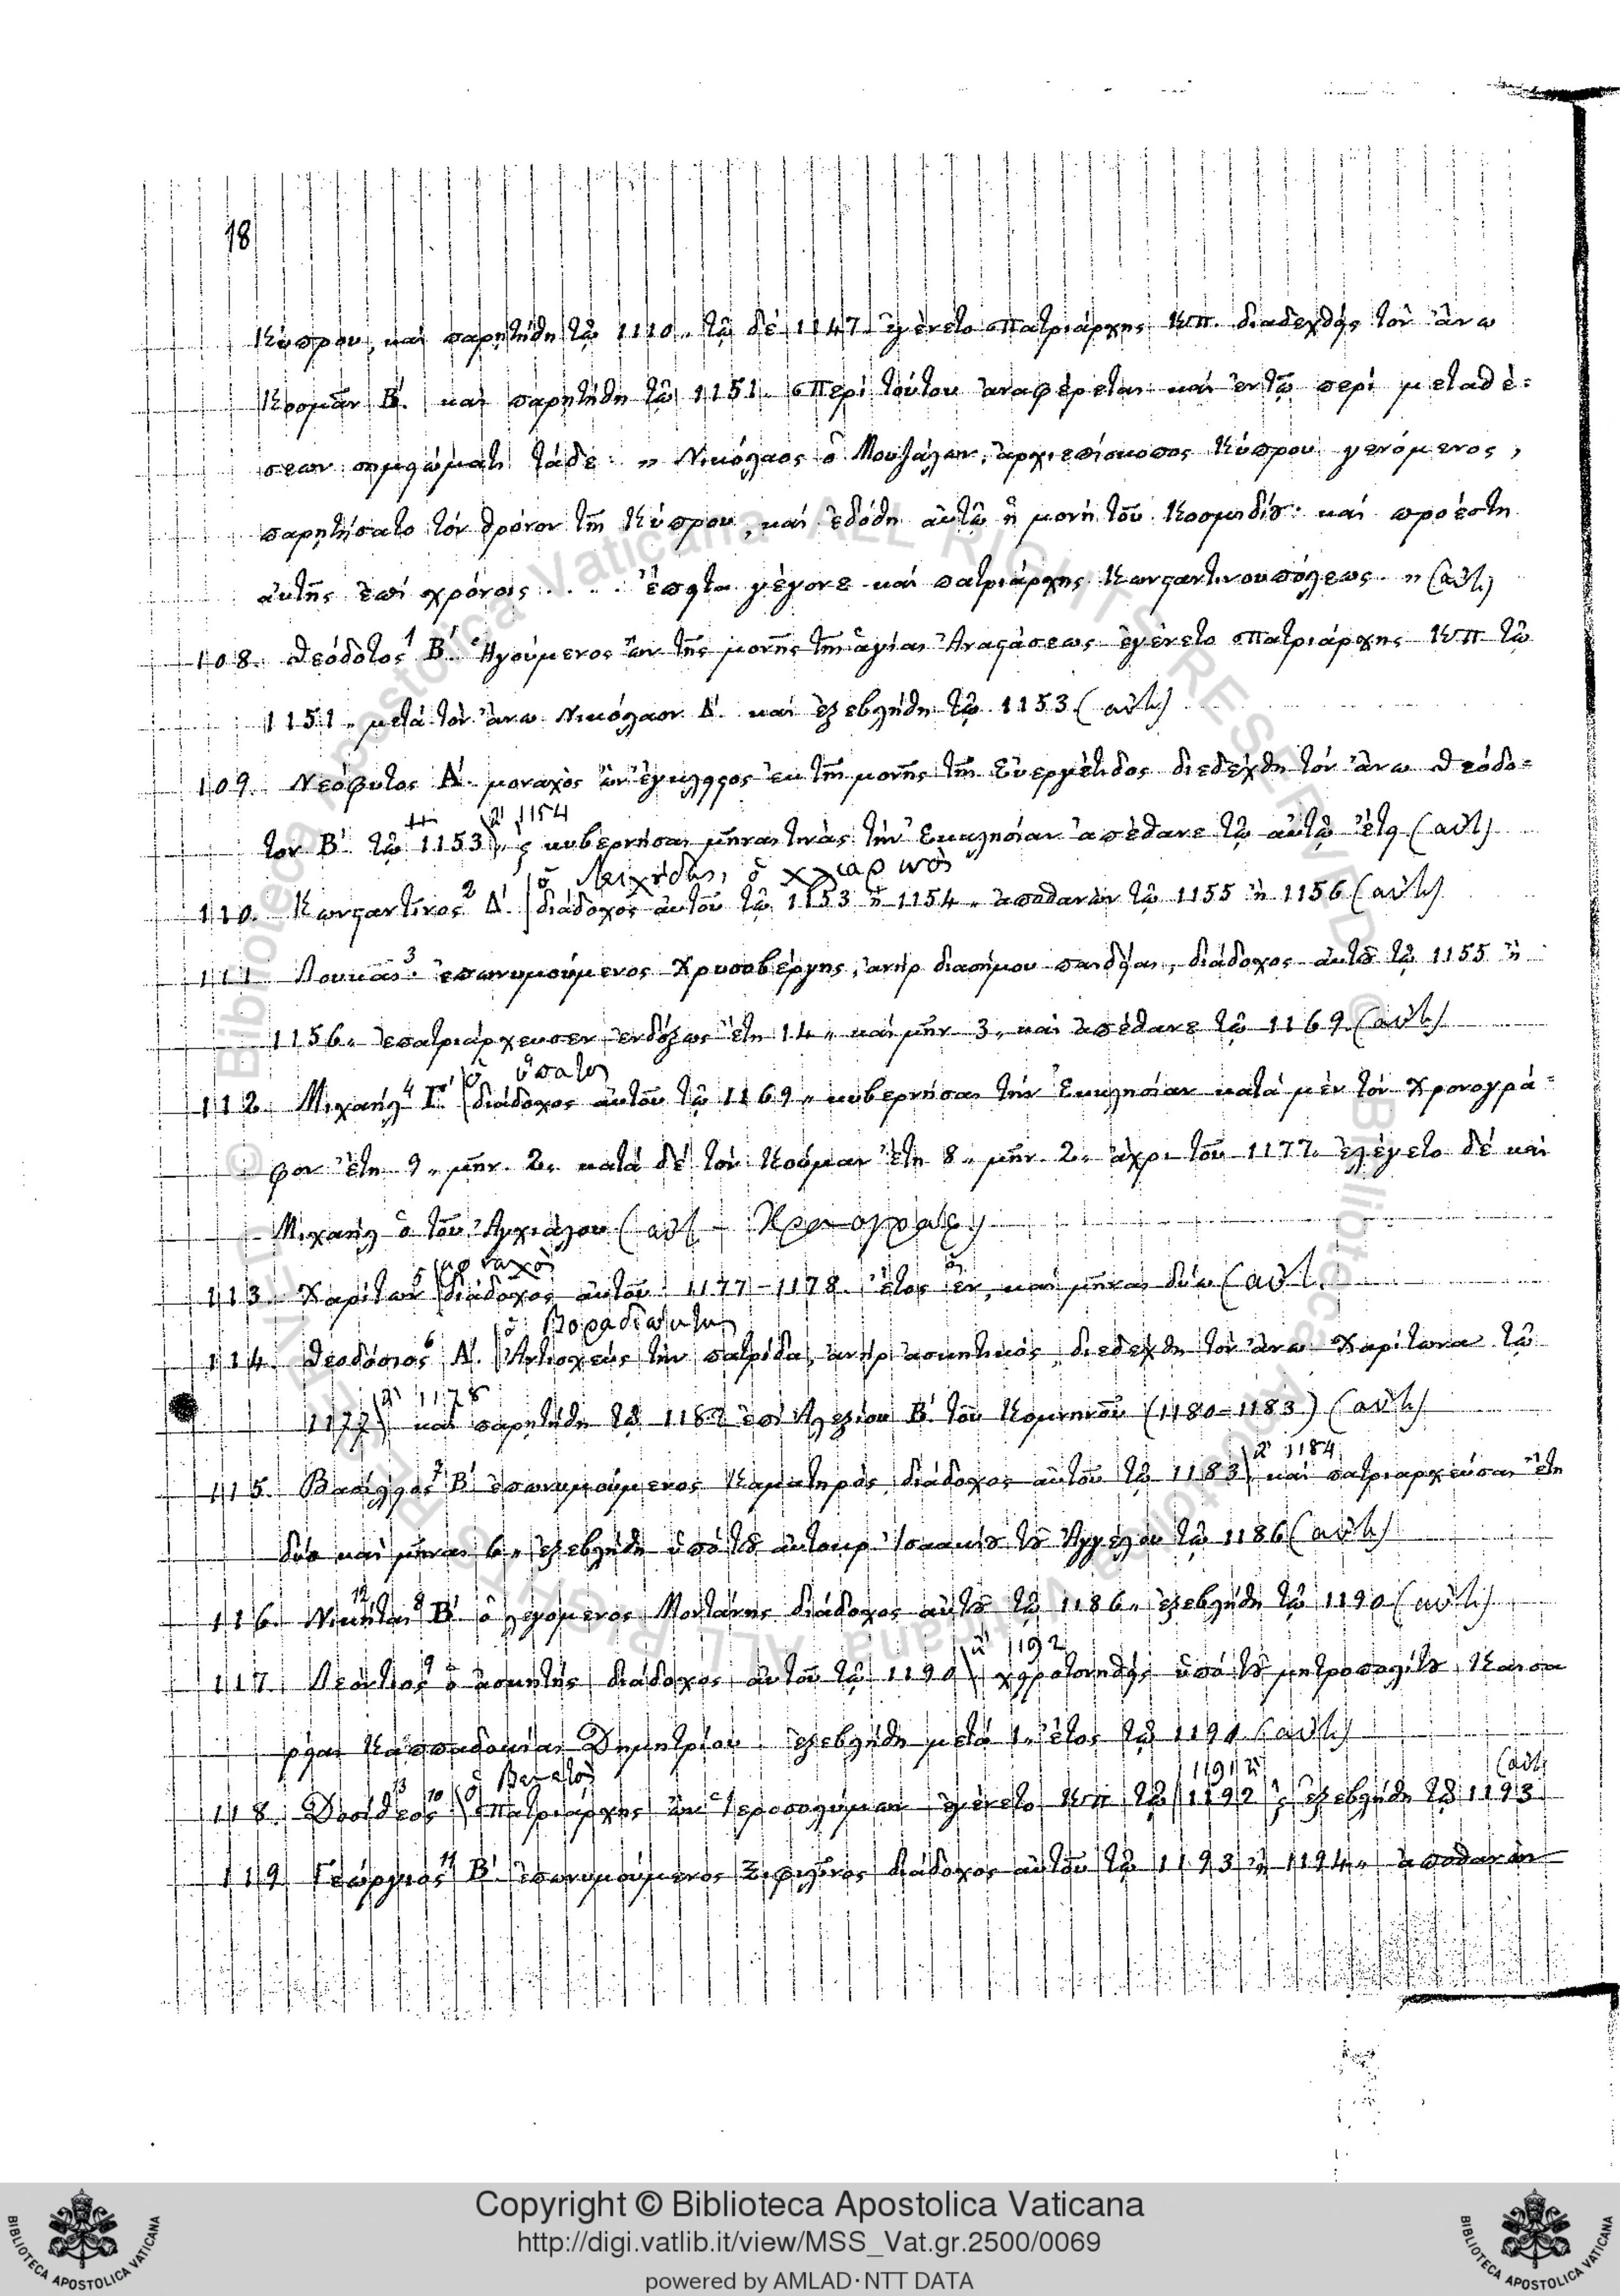 18
Κύπρου, καί παρῃτήθη τῷ 1110. τῷ δέ 1147 ἐγένετο Πατριάρχης Κπ. διαδεχθείς τόν ἄνω
Κοσμᾶν Β΄. καί παρῃτήθη τῷ 1151. Περί τούτου ἀναφέρεται καί ἐν τῷ περί μεταθέ=
σεων σημειώματι τάδε: „ Νικόλαος ὁ Μουζάλων, ἀρχιεπίσκοπος Κύπρου γενόμενος,
παρῃτήσατο τόν θρόνον τῆς Κύπρου, καί ἐδόθη αὐτῷ ἡ μονή τοῦ Κοσμιδίου· καί προέστη
αὐτῆς ἐπί χρόνοις .... ἔπειτα γέγονε καί πατριάρχης Κωνσταντινουπόλεως „ (αὐτ.)
108. Θεόδοτος 1 Β΄. Ἡγούμενος ὤν τῆς μονῆς τῆς ἁγίας Ἀναστάσεως ἐγένετο Πατριάρχης Κπ τῷ
1151. μετά τόν ἄνω Νικόλαον Δ΄. καί ἐξεβλήθη τῷ 1153 (αὐτ.)
109. Νεόφυτος Α΄. μοναχός ὤν ἔγκλειστος ἐκ τῆς μονῆς τῆς Εὐεργέτιδος διεδέχθη τόν ἄνω Θεόδο=
ἤ 1154
τον Β΄. τῷ 1153 κυβερνήσας μῆνας τινάς τήν Ἐκκλησίαν ἀπέθανε τῷ αὐτῷ ἔτει (αὐτ.)
ὁ Λειχούδης, ὁ χλιαρηνός
110. Κωνσταντῖνος 2 Δ΄. διάδοχος αὐτοῦ τῷ 1153 ἤ 1154. ἀποθανών τῷ 1155 ἤ 1156 (αὐτ.)
111 Λουκᾶς 3. ἐπονομούμενος Χρυσοβέργης, ἀνήρ διασήμου παιδείας, διάδοχος αὐτοῦ τῷ 1155 ἤ
1156. ἐπατριάρχευσεν ἐνδόξως ἔτη 14. καί μῆν. 3. καί ἀπέθανε τῷ 1169 (αὐτ.)
ὁ ὕπατος
112. Μιχαήλ 4 Γ΄. διάδοχος αὐτοῦ τῷ 1169. κυβερνήσας τήν Ἐκκλησίαν κατά μέν τόν Χρονογρά=
φον ἔτη 9. μῆν. 2. κατά δέ τόν Κούμαν ἔτη 8. μῆν. 2. ἄχρι τοῦ 1177. ἐλέγετο δέ καί
Μιχαήλ ὁ τοῦ Ἀγχιάλου (αὐτ. Χρονογράφ.)
μοναχός
113. Χαρίτων 5 διάδοχος αὐτοῦ 1177-1178. ἔτος ἕν, καί μῆνας δύω (αὐτ.
ὁ Βοραδιώτης
114. Θεοδόσιος 6 Α΄. Ἀντιοχεύς τήν πατρίδα, ἀνήρ ἀσκητικός, διεδέχθη τόν ἄνω Χαρίτωνα τῷ
ἤ 1178
1177 καί παρῃτήθη τῷ 1183 ἐπί Ἀλεξίου Β΄. τοῦ Κομνηνοῦ (1180-1183) (αὐτ.)
ἤ 1184
115. Βασίλειος 7 Β΄ ἐπονομούμενος Καματηρός διάδοχος αὐτοῦ τῷ 1183 καί πατριαρχεύσας ἔτη
δύο καί μῆνας 6. ἐξεβλήθη ὑπό τοῦ αὐτοκρ. Ἰσαακίου τοῦ Ἀγγέλου τῷ 1186 (αὐτ.)
116. Νικήτας 12 8 Β΄ ὁ λεγόμενος Μουτάνης διάδοχος αὐτοῦ τῷ 1186. ἐξεβλήθη τῷ 1190 (αὐτ.)
ἤ 1192
117. Λεόντιος 9 ὁ ἀσκητής διάδοχος αὐτοῦ τῷ 1190 χειροτονηθείς ὑπό τοῦ μητροπολίτου Καισα
ρείας Καππαδοκίας Δημητρίου ἐξεβλήθη μετά 1. ἔτος τῷ 1191 (αὐτ.)
1191 ἤ (αὐτ.
118. Δοσίθεος 13 10 Πατριάρχης ὤν Ἱεροσολύμων ἐγένετο Κπ τῷ 1192 ἐξεβλήθη τῷ 1193
119 Γεώργιος 11 Β΄. ἐπονομούμενος Ξιφιλῖνος διάδοχος αὐτοῦ τῷ 1193 ἤ 1194. ἀποθανών
© Biblioteca Apostolica Vaticana ALL RIGHTS RESERVED
Copyright © Biblioteca Apostolica Vaticana
http://digi.vatlib.it/view/MSS_Vat.gr.2500/0069
powered by AMLAD·NTT DATA
BIBLIOTECA APOSTOLICA VATICANA
BIBLIOTECA APOSTOLICA VATICANA